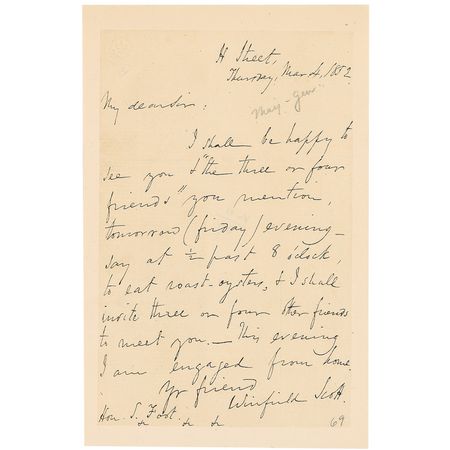 H Street,
Thursday, Mar 4, 1852.
My dear Sir:
Maj-Gen'
I shall be happy to
see you & "the three or four
friends" you mention,
tomorrow (friday) evening—
say at ½ past 8 o'clock,
to eat roast-oysters, & I shall
invite three or four other friends
to meet you.— This evening
I am engaged from home.
Yr friend
Winfield Scott.
Hon. S. Foot.
69